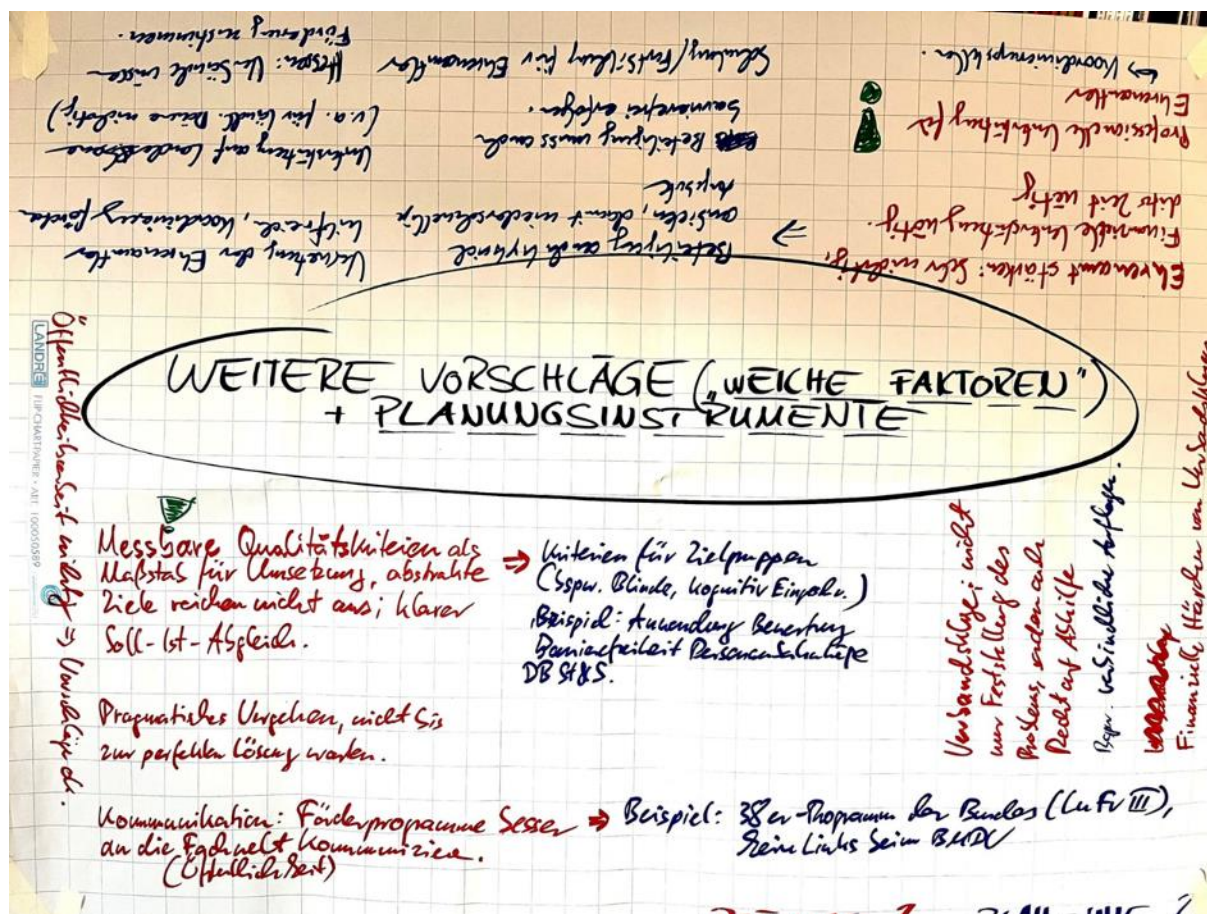 WEITERE VORSCHLÄGE („WEICHE FAKTOREN“)
+ PLANUNGSINSTRUMENTE
Ehrenamt stärken: Sehr wichtig,
Finanzielle Unterstützung nötig.
dito Zeit nötig
Professionelle Unterstützung für
Ehrenamtler
↳ Koordinierungsstellen.
⇒ Beteiligung auch hybrid
ansichten, damit niederschwellige
Angebote
Beteiligung muss auch
barrierefrei erfolgen.
Schulung/Fortbildung für Ehrenamtler
Vernetzung der Ehrenamtler
hilfreich, Koordinierung fördern
Unterstützung auf Landesebene
(v.a. für ländl. Räume wichtig)
Hessen: Verbände müssen
Förderung zustimmen.
Messbare Qualitätskriterien als
Maßstab für Umsetzung, abstrakte
Ziele reichen nicht aus; klarer
Soll-Ist-Abgleich.
⇒ Kriterien für Zielgruppen
(bspw. Blinde, kognitiv Eingeschr.)
Beispiel: Anwendung Bewertung
Barrierefreiheit Personenbahnhöfe
DB St&S.
Pragmatisches Vorgehen, nicht bis
zur perfekten Lösung warten.
Kommunikation: Förderprogramme besser
an die Fachwelt kommunizieren.
(Öffentlichkeit)
⇒ Beispiel: 38er-Programm des Bundes (LuFV III),
keine Links beim BMDV
Verbandsklage: nicht
nur Feststellung des
Problems, sondern auch
Recht auf Abhilfe
Bspw. verbindliche Auflagen.
Finanzielle Hürden von Verbandsklagen
Öffentlichkeitsarbeit wichtig ⇒ Vorschläge d.
LANDRÉ FLIPCHARTPAPIER • ART. 100050589